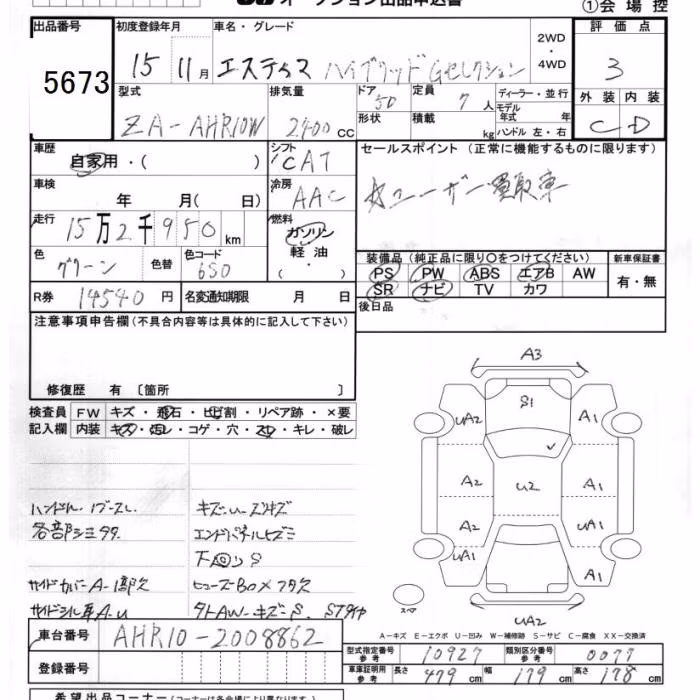 オークション出品申込書 ①会場控
出品番号 初度登録年月 車名・グレード 2WD・4WD 評価点
5673 15 11月 エスティマ ハイブリッドGセレクション 3
型式 排気量 ドア 定員 ディーラー・並行 外装 内装
ZA-AHR10W 2400cc 5D 7人 モデル年式 年 C D
形状 積載 kg ハンドル 左・右
車歴 シフト セールスポイント (正常に機能するものに限ります)
自家用・( ) CAT
車検 冷房 ☆ユーザー買取車
年 月( 日) AAC
走行 燃料
15万2千950km ガソリン
軽油
色 色替 色コード ( ・ )
グリーン 6S0
装備品 (純正品に限り○をつけてください) 新車保証書
PS PW ABS エアB AW 有・無
SR ナビ TV カワ
R券 14540円 名変通知期限 月 日 後日品
注意事項申告欄 (不具合内容等は具体的に記入して下さい)
修復歴 有 〔箇所 〕
検査員 FW キズ・飛石・ヒビ割・リペア跡・×要
記入欄 内装 キズ・汚レ・コゲ・穴・スレ・キレ・破レ
A3
S1
UA2 A1
A2 U2 A1
A2 UA1
UA2 A1
スペア
UA2
キズ・U・ズキズ
各部シミタタ エンドパネルヒズミ
下回りS
サイドカバーA-1部欠 ヒューズBOXフタ欠
サイドシル草A-U タトAW-キズ-S. STタイヤ
A-キズ E-エクボ U-凹み W-補修跡 S-サビ C-腐食 XX-交換済
車台番号 AHR10-2008862
型式指定番号 参考 10927 類別区分番号 参考 0077
登録番号 車庫証明用 参考 長さ 479cm 幅 179cm 高さ 178cm
希望出品コーナー (コーナーは各会場により異なります)